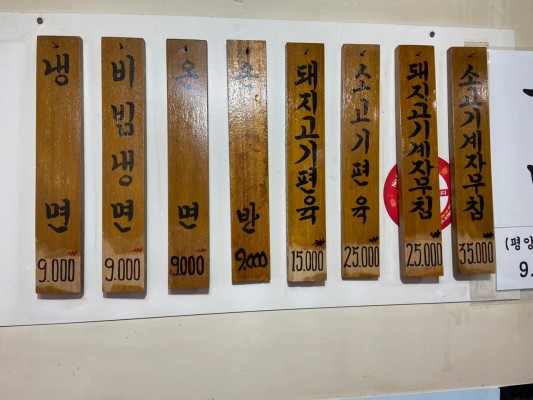 냉면
9.000
비빔냉면
9.000
온면
9.000
온반
9.000
돼지고기편육
15.000
소고기편육
25.000
돼지고기계자무침
25.000
소고기계자무침
35.000
(평양
9.